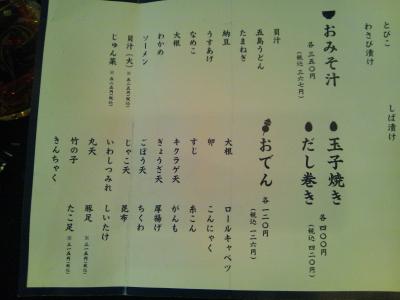 とびこ
わさび漬け
しば漬け
おみそ汁
各三五〇円
(税込 三六七円)
貝汁
五島うどん
たまねぎ
納豆
うすあげ
なめこ
大根
わかめ
ソーメン
貝汁(大)
じゅん菜
玉子焼き
だし巻き
各四〇〇円
(税込 四二〇円)
おでん
各一二〇円
(税込 一二六円)
大根
卵
すじ
キクラゲ天
ぎょうざ天
ごぼう天
じゃこ天
いわしつみれ
丸天
竹の子
きんちゃく
ロールキャベツ
こんにゃく
糸こん
がんも
厚揚げ
ちくわ
昆布
しいたけ
豚足
たこ足